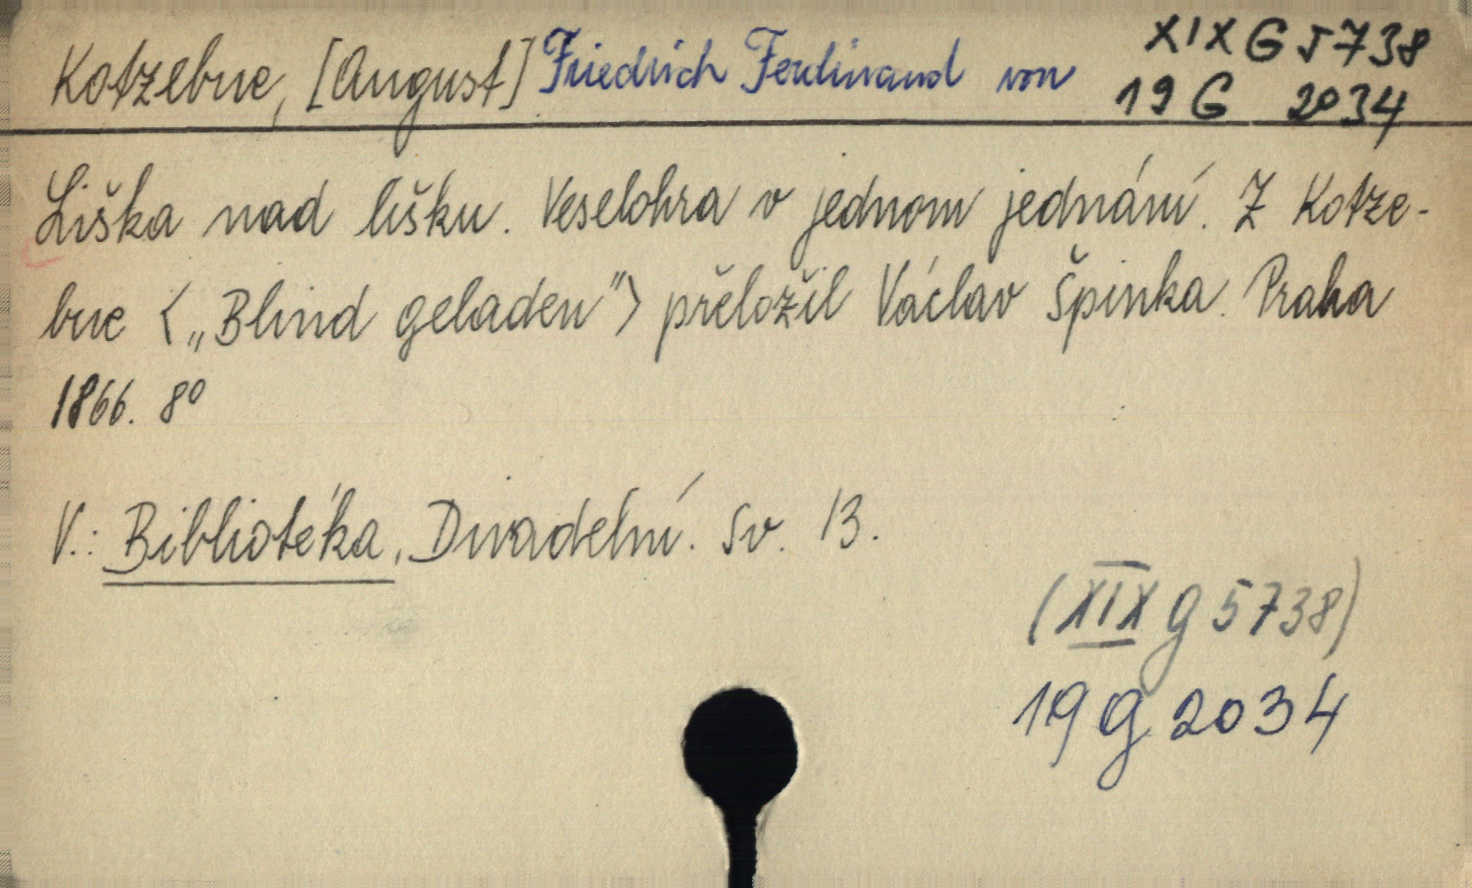 Kotzebue, [August] Friedrich Ferdinand von
XIX G 5738
19 G 2034
Liška nad lišku. Veselohra v jednom jednání. Z Kotze-
bue <„Blind geladen"> přeložil Václav Špinka. Praha
1866. 8°
V.: Bibliotéka, Divadelní. Sv. 13.
(XIX g 5738)
19 g 2034